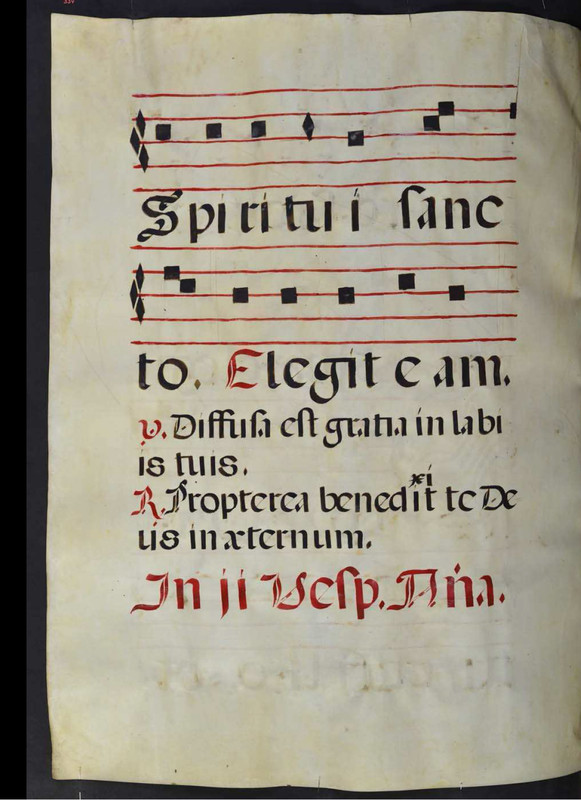 Spiritui sanc
to. Elegit eam.
℣. Diffusa est gratia in labi
is tuis.
xi
℟. Propterea benedit te De
us in æternum.
In ij Vesp. Aña.